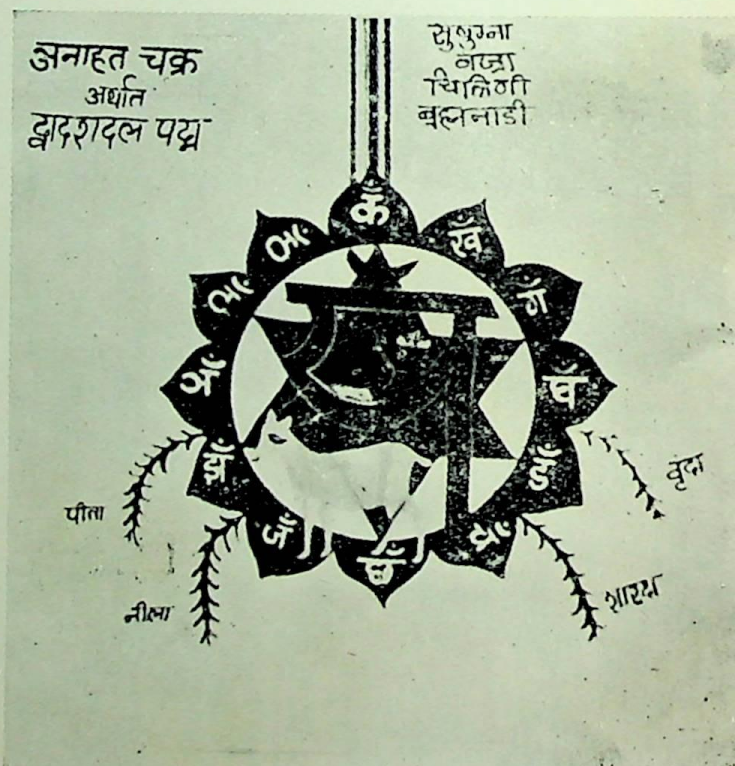 अनाहत चक्र
अर्थात
द्वादशदल पद्म
सुषुम्ना
वज्रा
चित्रिणी
ब्रह्मनाडी
कँ
खँ
गँ
घँ
ङँ
चँ
छँ
जँ
झँ
पीता
नीला
वृंदा
शारदा